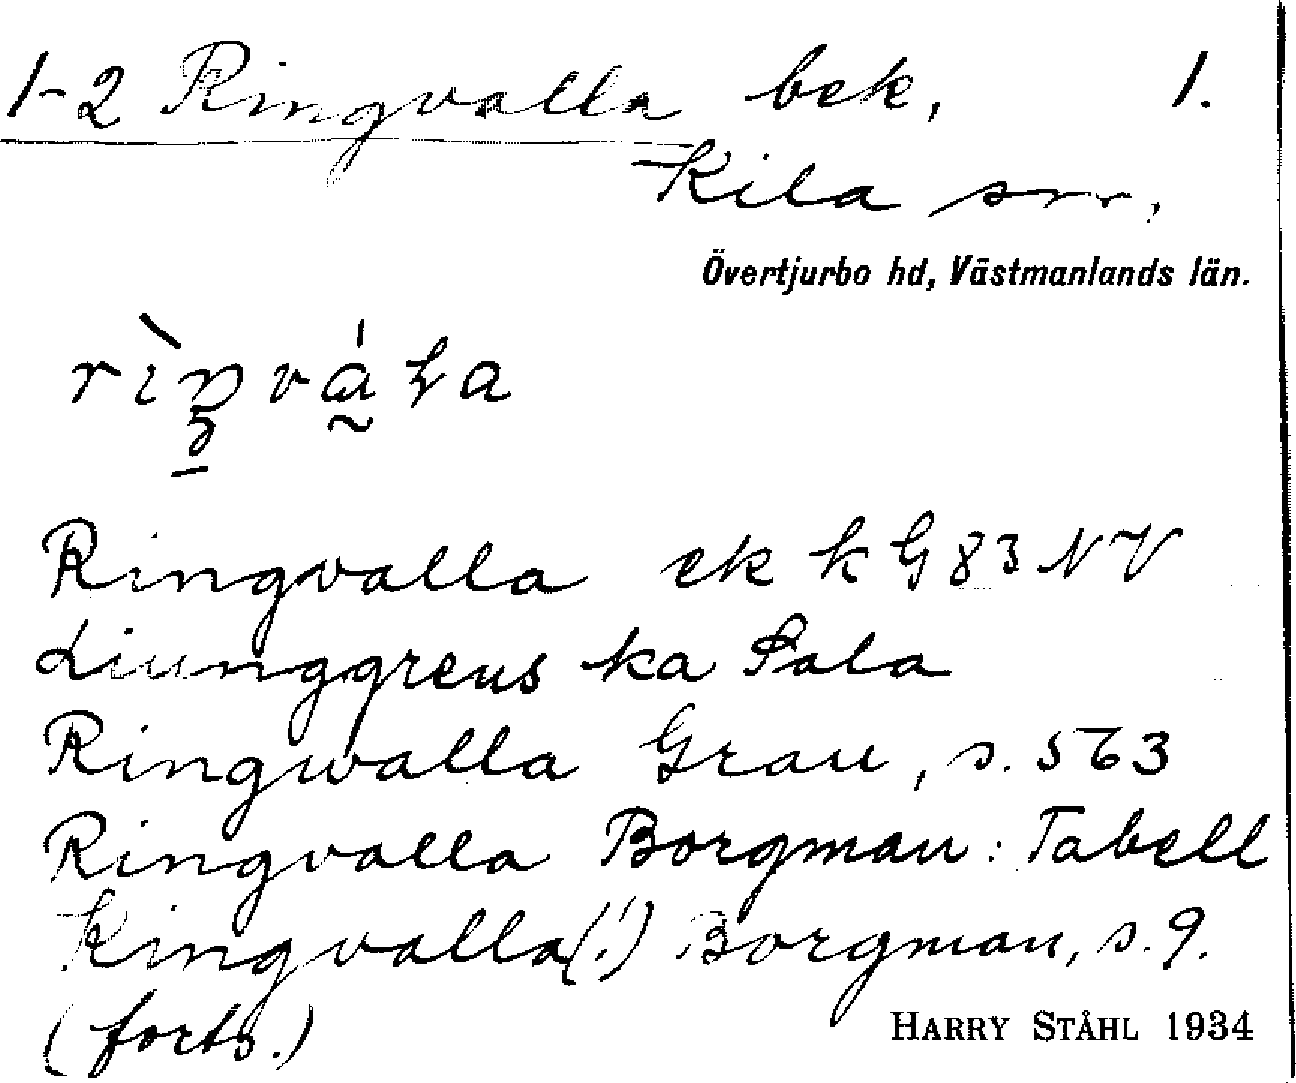 1-2 Ringvalla bek, 1.
Kila sn,
Övertjurbo hd, Västmanlands län.
Ringvalla ek k G 83 NV
Liunggrens ka Sala
Ringwalla Grau, s. 563
Ringvalla Borgman: Tabell
Kingvalla(!) Borgman, s. 9.
(forts.) HARRY STÅHL 1934